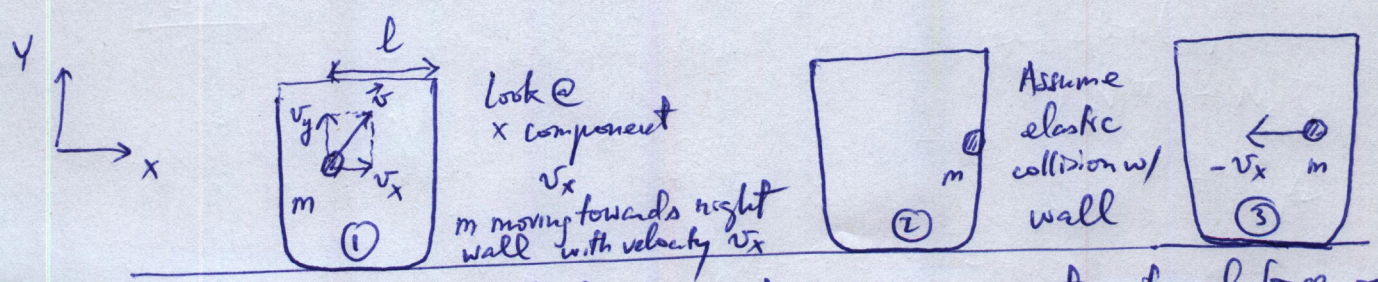 Y
X
l
v⃗
v_y
v_x
m
①
Look @
x component
v_x
m moving towards right
wall with velocity v_x
m
②
Assume
elastic
collision w/
wall
-v_x m
③